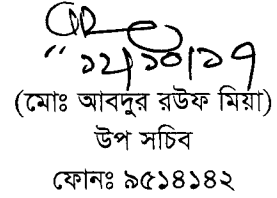 ১২/১০/১৭
(মোঃ আবদুর রউফ মিয়া)
উপ সচিব
ফোনঃ ৯৫১৪১৪২